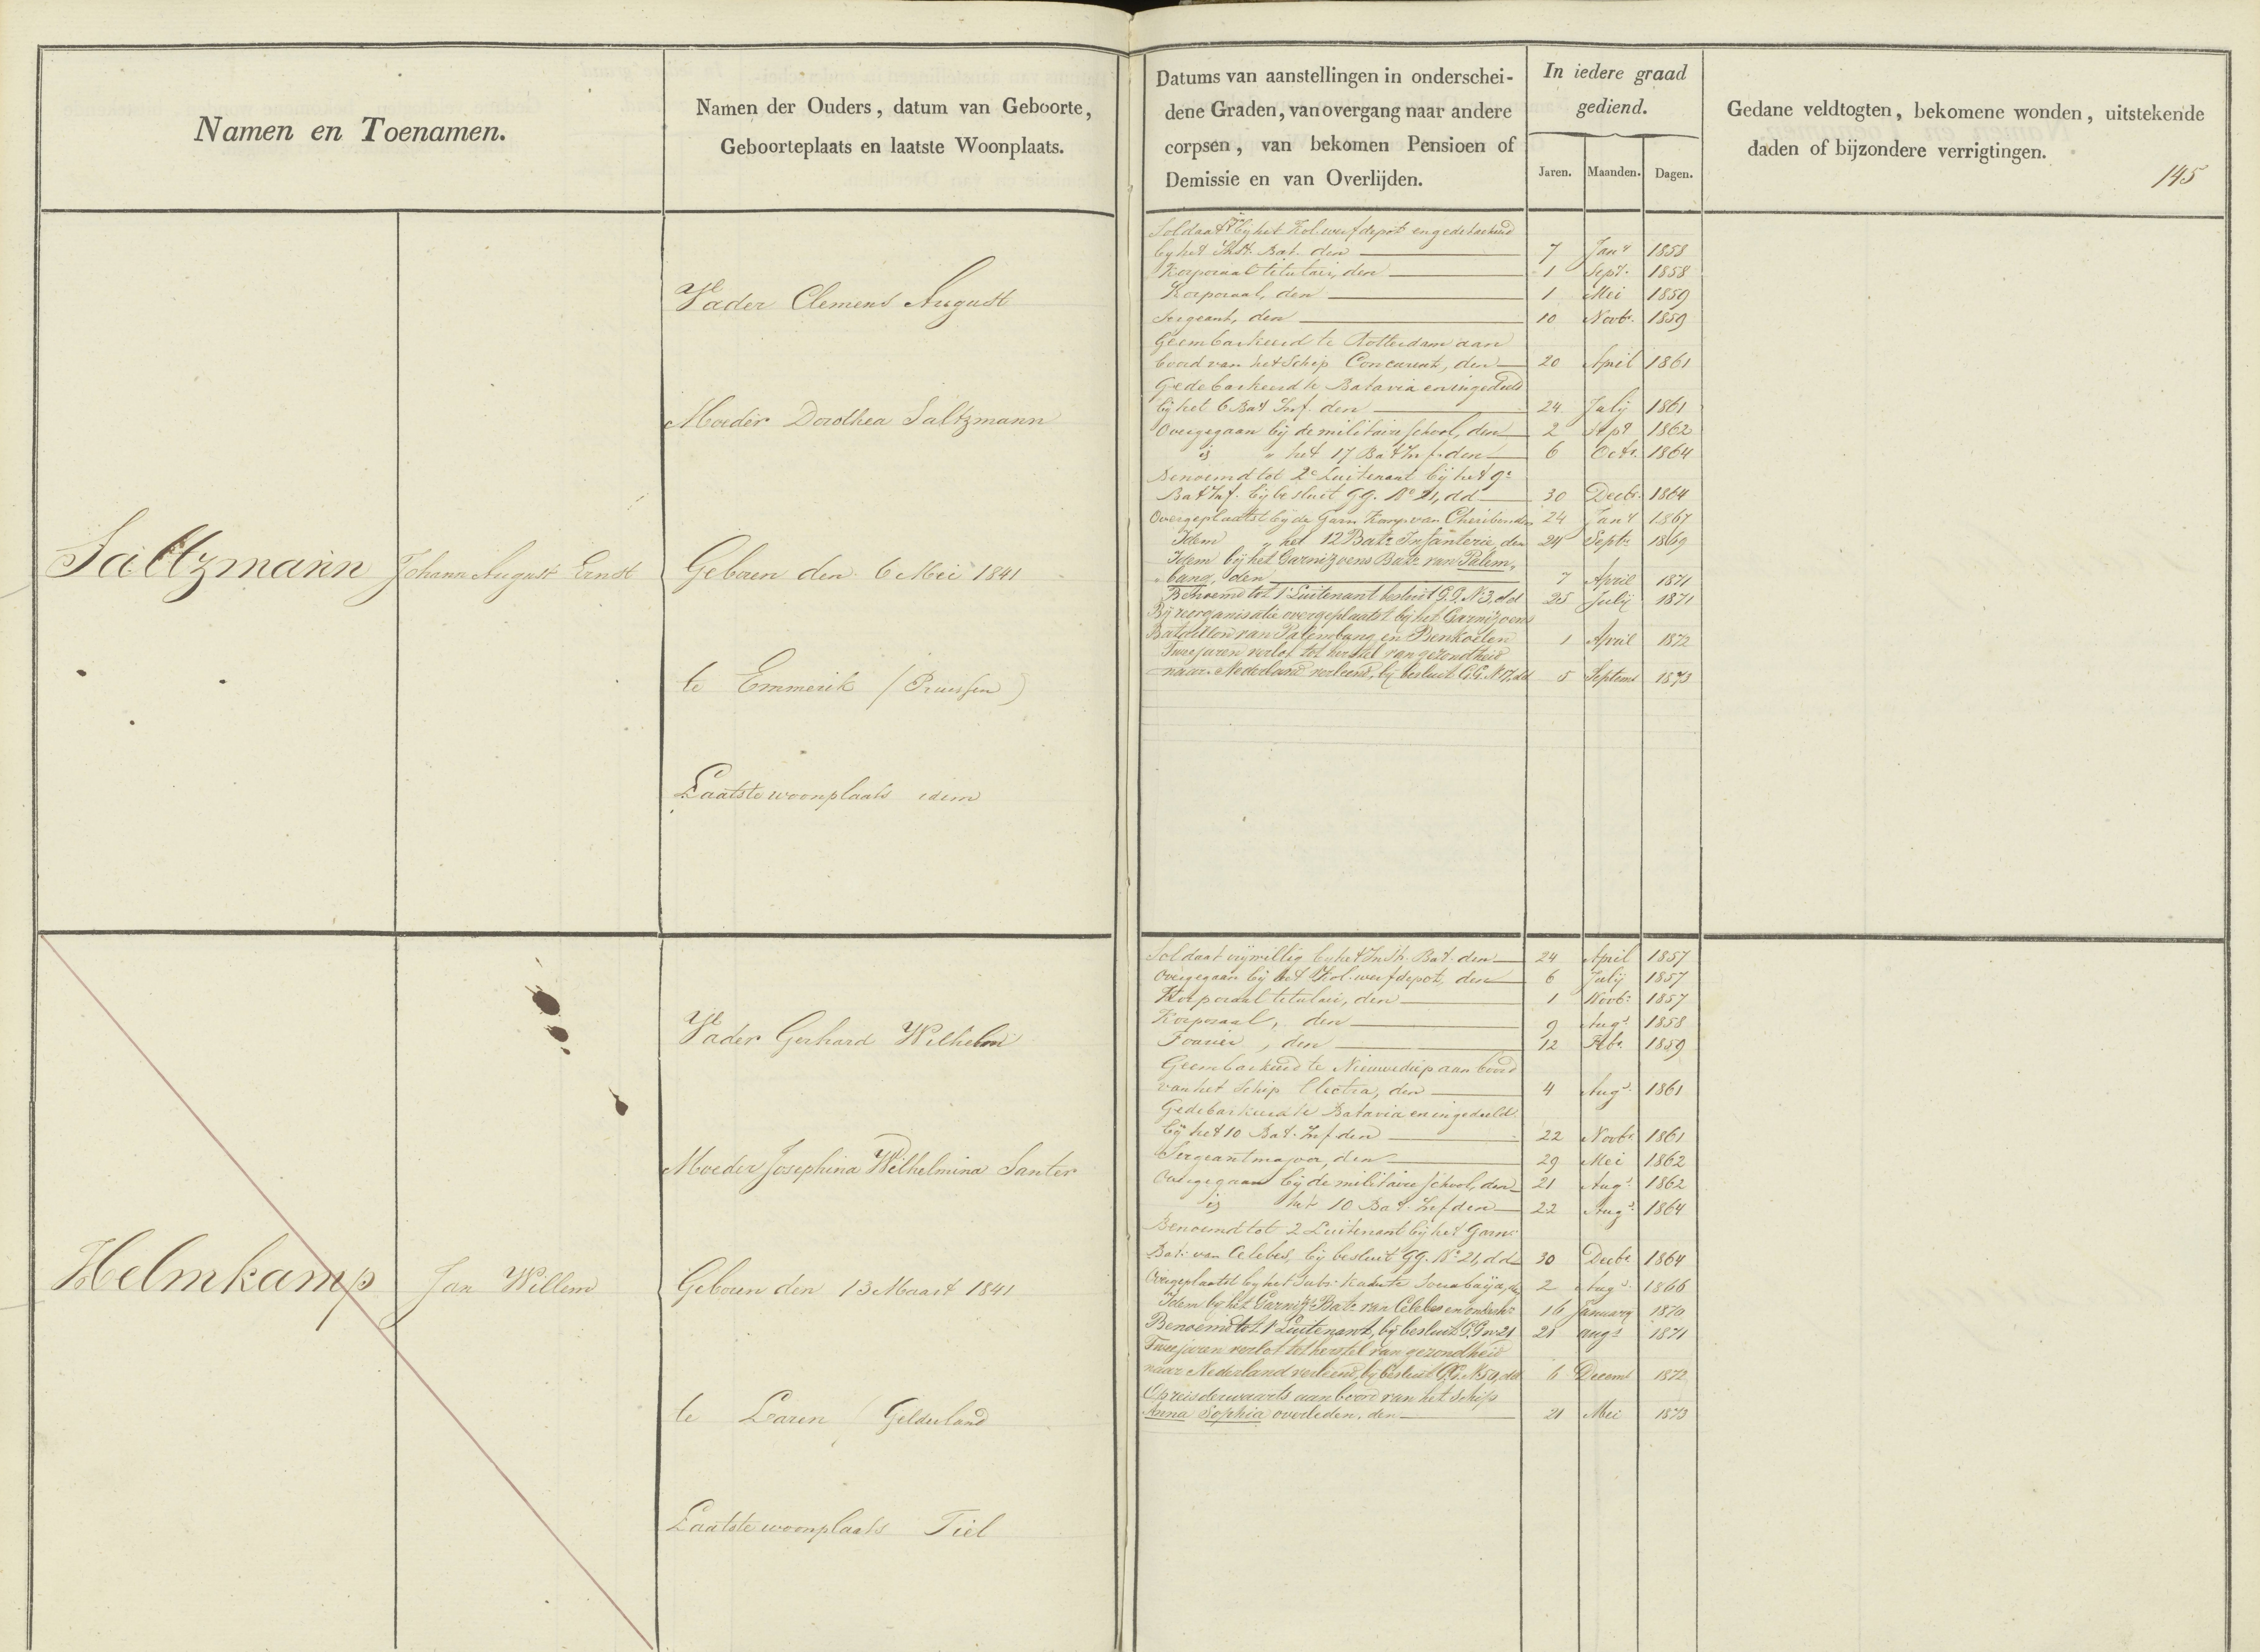 Namen en Toenamen.
Namen der Ouders, datum van Geboorte,
Geboorteplaats en laatste Woonplaats.
Datums van aanstellingen in onderschei-
dene Graden, van overgang naar andere
corpsen, van bekomen Pensioen of
Demissie en van Overlijden.
In iedere graad
gediend.
Jaren. Maanden. Dagen.
Gedane veldtogten, bekomene wonden, uitstekende
daden of bijzondere verrigtingen.
145
Saltzmann Johann August Ernst
Vader Clemens August
Moeder Dorothea Saltzmann
Geboren den 6 Mei 1841
te Emmerik (Pruissen)
Laatste woonplaats idem
Soldaat bij het Kol. werfdepot en gedetacheerd
bij het Inst. Bat. den 7 Jany 1858
Korporaal titulair, den 1 Sept. 1858
Korporaal, den 1 Mei 1859
Sergeant, den 10 Novbr. 1859
Geembarkeerd te Rotterdam aan
boord van het Schip Concurent, den 20 April 1861
Gedebarkeerd te Batavia en ingedeeld
bij het 6 Bat Inf. den 24 July 1861
Overgegaan bij de militaire school, den 2 Sept 1862
is " het 17 Bat Inf. den 6 Octr. 1864
Benoemd tot 2e Luitenant bij het 9e
Bat Inf. bij besluit GG. No 21, dd 30 Decbr. 1864
Overgeplaatst bij de Garn. Komp. van Cheribon den 24 Jany 1867
Idem " het 12 Bat. Infanterie, den 24 Septr 1869
Idem bij het Garnizoens Bat. van Palem-
bang, den 7 April 1871
Benoemd tot 1e Luitenant besluit G.G. N 3, dd 25 Julij 1871
Bij reorganisatie overgeplaatst bij het Garnizoens
Bataillon van Palembang en Benkoelen 1 April 1872
Twee jaren verlof tot herstel van gezondheid
naar Nederland verleend, bij besluit G.G. N 17, dd 5 Septemb 1873
Helmkamp Jan Willem
Vader Gerhard Wilhelm
Moeder Josephina Wilhelmina Santer
Geboren den 13 Maart 1841
te Laren (Gelderland
Laatste woonplaats Tiel
Soldaat vrijwillig bij het Inst. Bat. den 24 April 1857
Overgegaan bij het Kol. werfdepot, den 6 Julij 1857
Korporaal titulair, den 1 Novbr 1857
Korporaal, den 9 Augs. 1858
Fourier, den 12 Febr. 1859
Geembarkeerd te Nieuwediep aan boord
van het Schip Electra, den 4 Augs. 1861
Gedebarkeerd te Batavia en ingedeeld
bij het 10 Bat. Inf den 22 Novbr. 1861
Sergeantmajoor, den 29 Mei 1862
Overgegaan bij de militaire school, den 21 Augs. 1862
is het 10 Bat. Inf den 22 Augs. 1864
Benoemd tot 2 Luitenant bij het Garn.
Bat. van Celebes, bij besluit GG. No 21, dd 30 Decbr 1864
Overgeplaatst bij het Subs. Kader te Sourabaija, den 2 Augs. 1866
Idem bij het Garniz. Bat. van Celebes en onderh. 16 January 1870
Benoemd tot 1e Luitenant, bij besluit G.G. no 21 21 augs 1871
Twee jaren verlof tot herstel van gezondheid
naar Nederland verleend, bij besluit G.G. N 50, dd 6 Decemb 1872
Op reis derwaarts aan boord van het schip
Anna Sophia overleden, den 21 Mei 1873